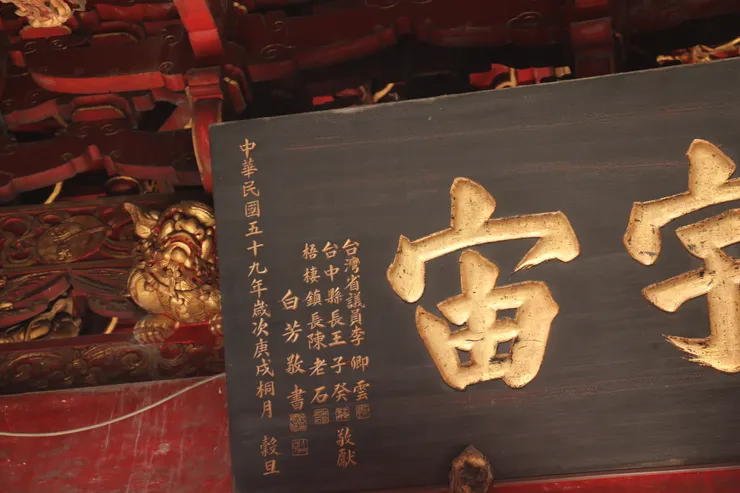 宇宙
台灣省議員李卿雲
台中縣長王子癸 敬獻
梧棲鎮長陳老石
白芳敬書
中華民國五十九年歲次庚戌桐月 穀旦